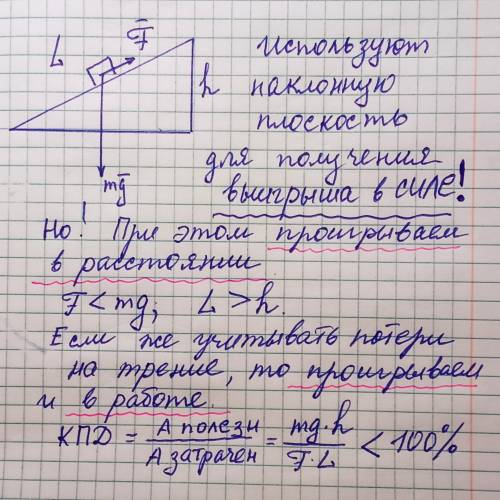 L
F̄
h
mḡ
Используют
наклонную
плоскость
для получения
выигрыша в СИЛЕ!
Но! При этом проигрываем
в расстоянии
F < mg; L > h.
Если же учитывать потери
на трение, то проигрываем
и в работе.
КПД = А полезн / А затрачен = mg·h / F·L < 100%